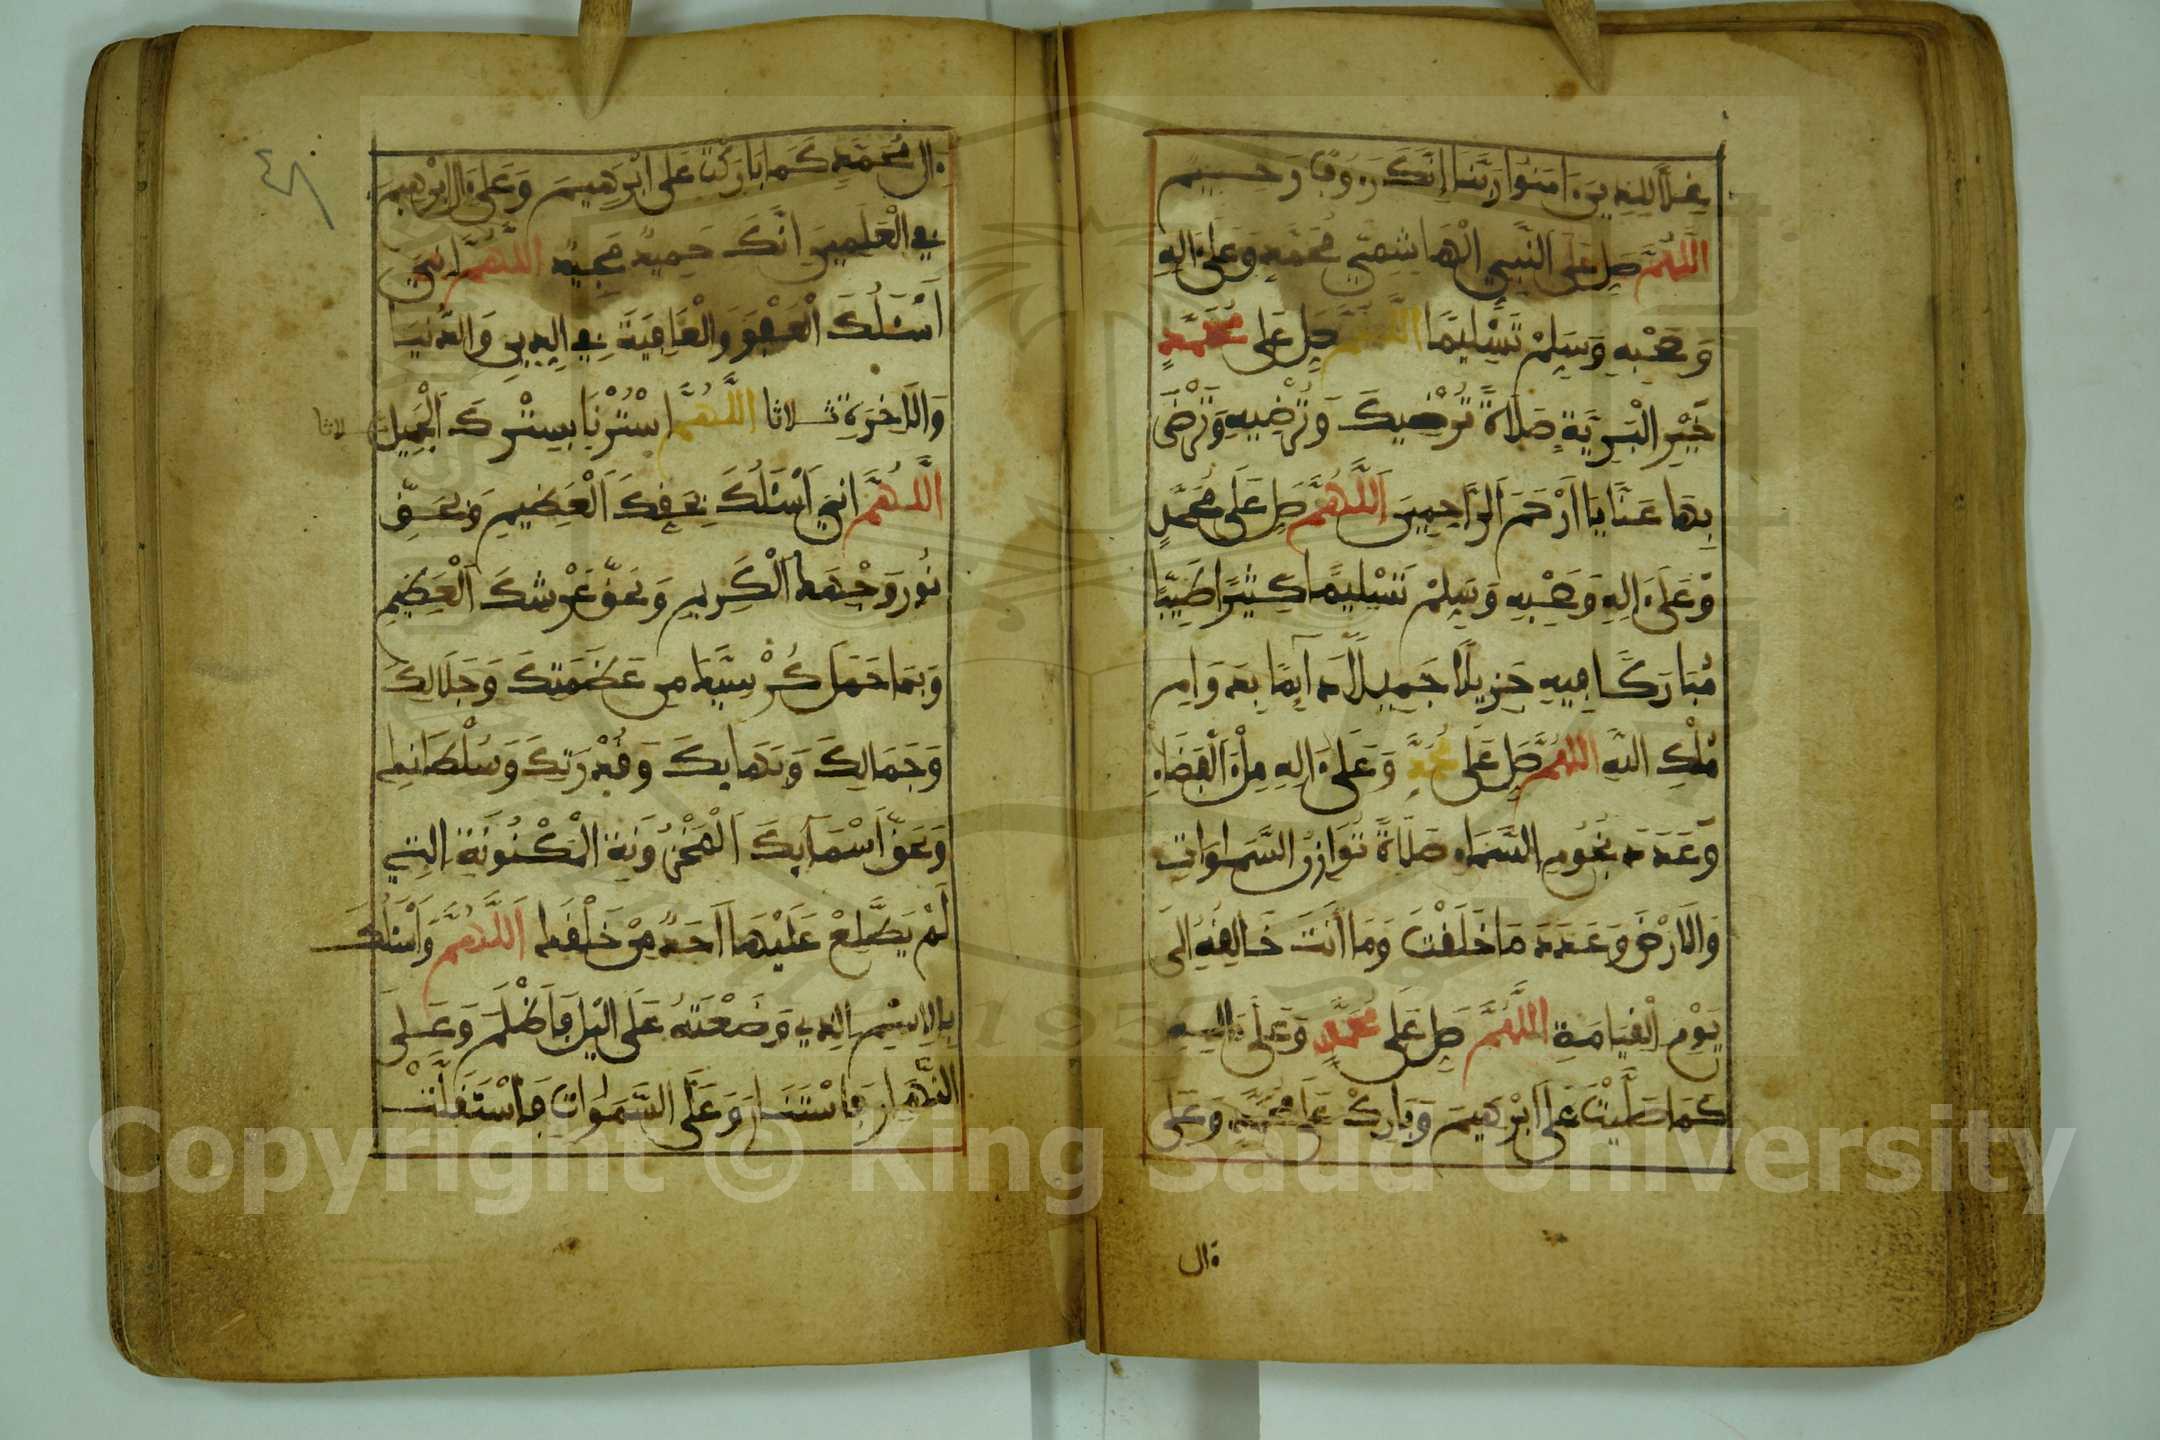 غلا للذين ءامنوا ربنا إنك رءوف رحيم
اللهم صل على النبي الهاشمي محمد وعلى ءاله
وصحبه وسلم تسليما اللهم صل على محمد
خير البرية صلاة ترضيك وترضيه وترضى
بها عنا يا ارحم الراحمين اللهم صل على محمد
وعلى ءاله وصحبه وسلم تسليما كثيرا طيبا
مباركا فيه جزيلا جميلا دآيما بدوام
ملك الله اللهم صل على محمد وعلى ءاله ملء الفضاء
وعدد نجوم السماء صلاة توازن السموات
والارض وعدد ما خلقت وما أنت خالقه الى
يوم القيامة اللهم صل على محمد وعلى ءاله
كما صليت على ابرهيم وبارك على محمد وعلى
ءال
٤٨
ءال محمد كما باركت على ابرهيم وعلى ءال ابرهيم
في العلمين انك حميد مجيد اللهم إني
أسئلك العفو والعافية في الدين والدنيا
والاخرة ثلاثا اللهم استرنا بسترك الجميل ثلاثا
اللهم اني أسئلك بحقك العظيم وبحق
نور وجهك الكريم وبحق عرشك العظيم
وبما حمل كرسيك من عظمتك وجلالك
وجمالك وبهايك وقدرتك وسلطانك
وبحق أسمآيك المخزونة المكنونة التي
لم يطلع عليها احد من خلقك اللهم وأسئلك
بالاسم الذي وضعته على اليل فأظلم وعلى
النهار فاستنار وعلى السموات فاستقلت
Copyright © King Saud University
1957